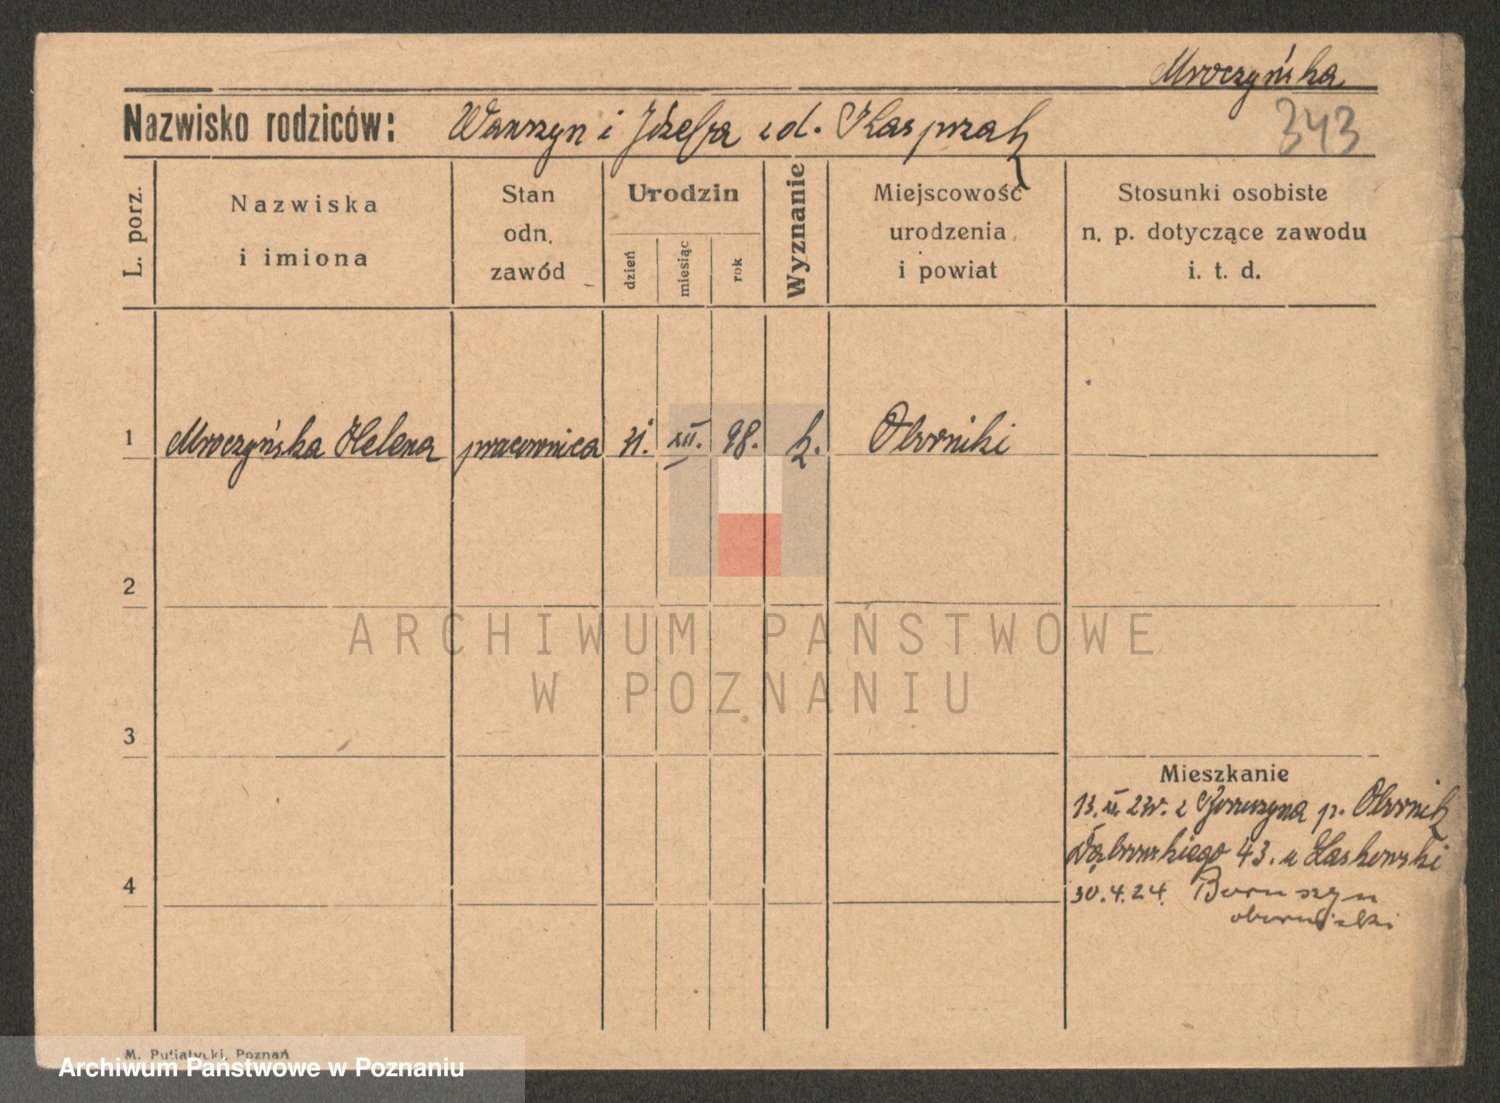 Mroczyńska
343
Nazwisko rodziców: Wawrzyn i Józefa z d. Kasprzak
L. porz.
Nazwiska
i imiona
Stan
odn.
zawód
Urodzin
dzień
miesiąc
rok
Wyznanie
Miejscowość
urodzenia
i powiat
Stosunki osobiste
n. p. dotyczące zawodu
i. t. d.
1 Mroczyńska Helena pracownica 31. XII. 98. k. Oborniki
2
ARCHIWUM PAŃSTWOWE
W POZNANIU
3
Mieszkanie
13. 23r. z p. Obornik
Dąbrowskiego 43. u Laskowski
4
30.4.24. Boruszyn
obornicki
M. Putiatycki, Poznań
Archiwum Państwowe w Poznaniu